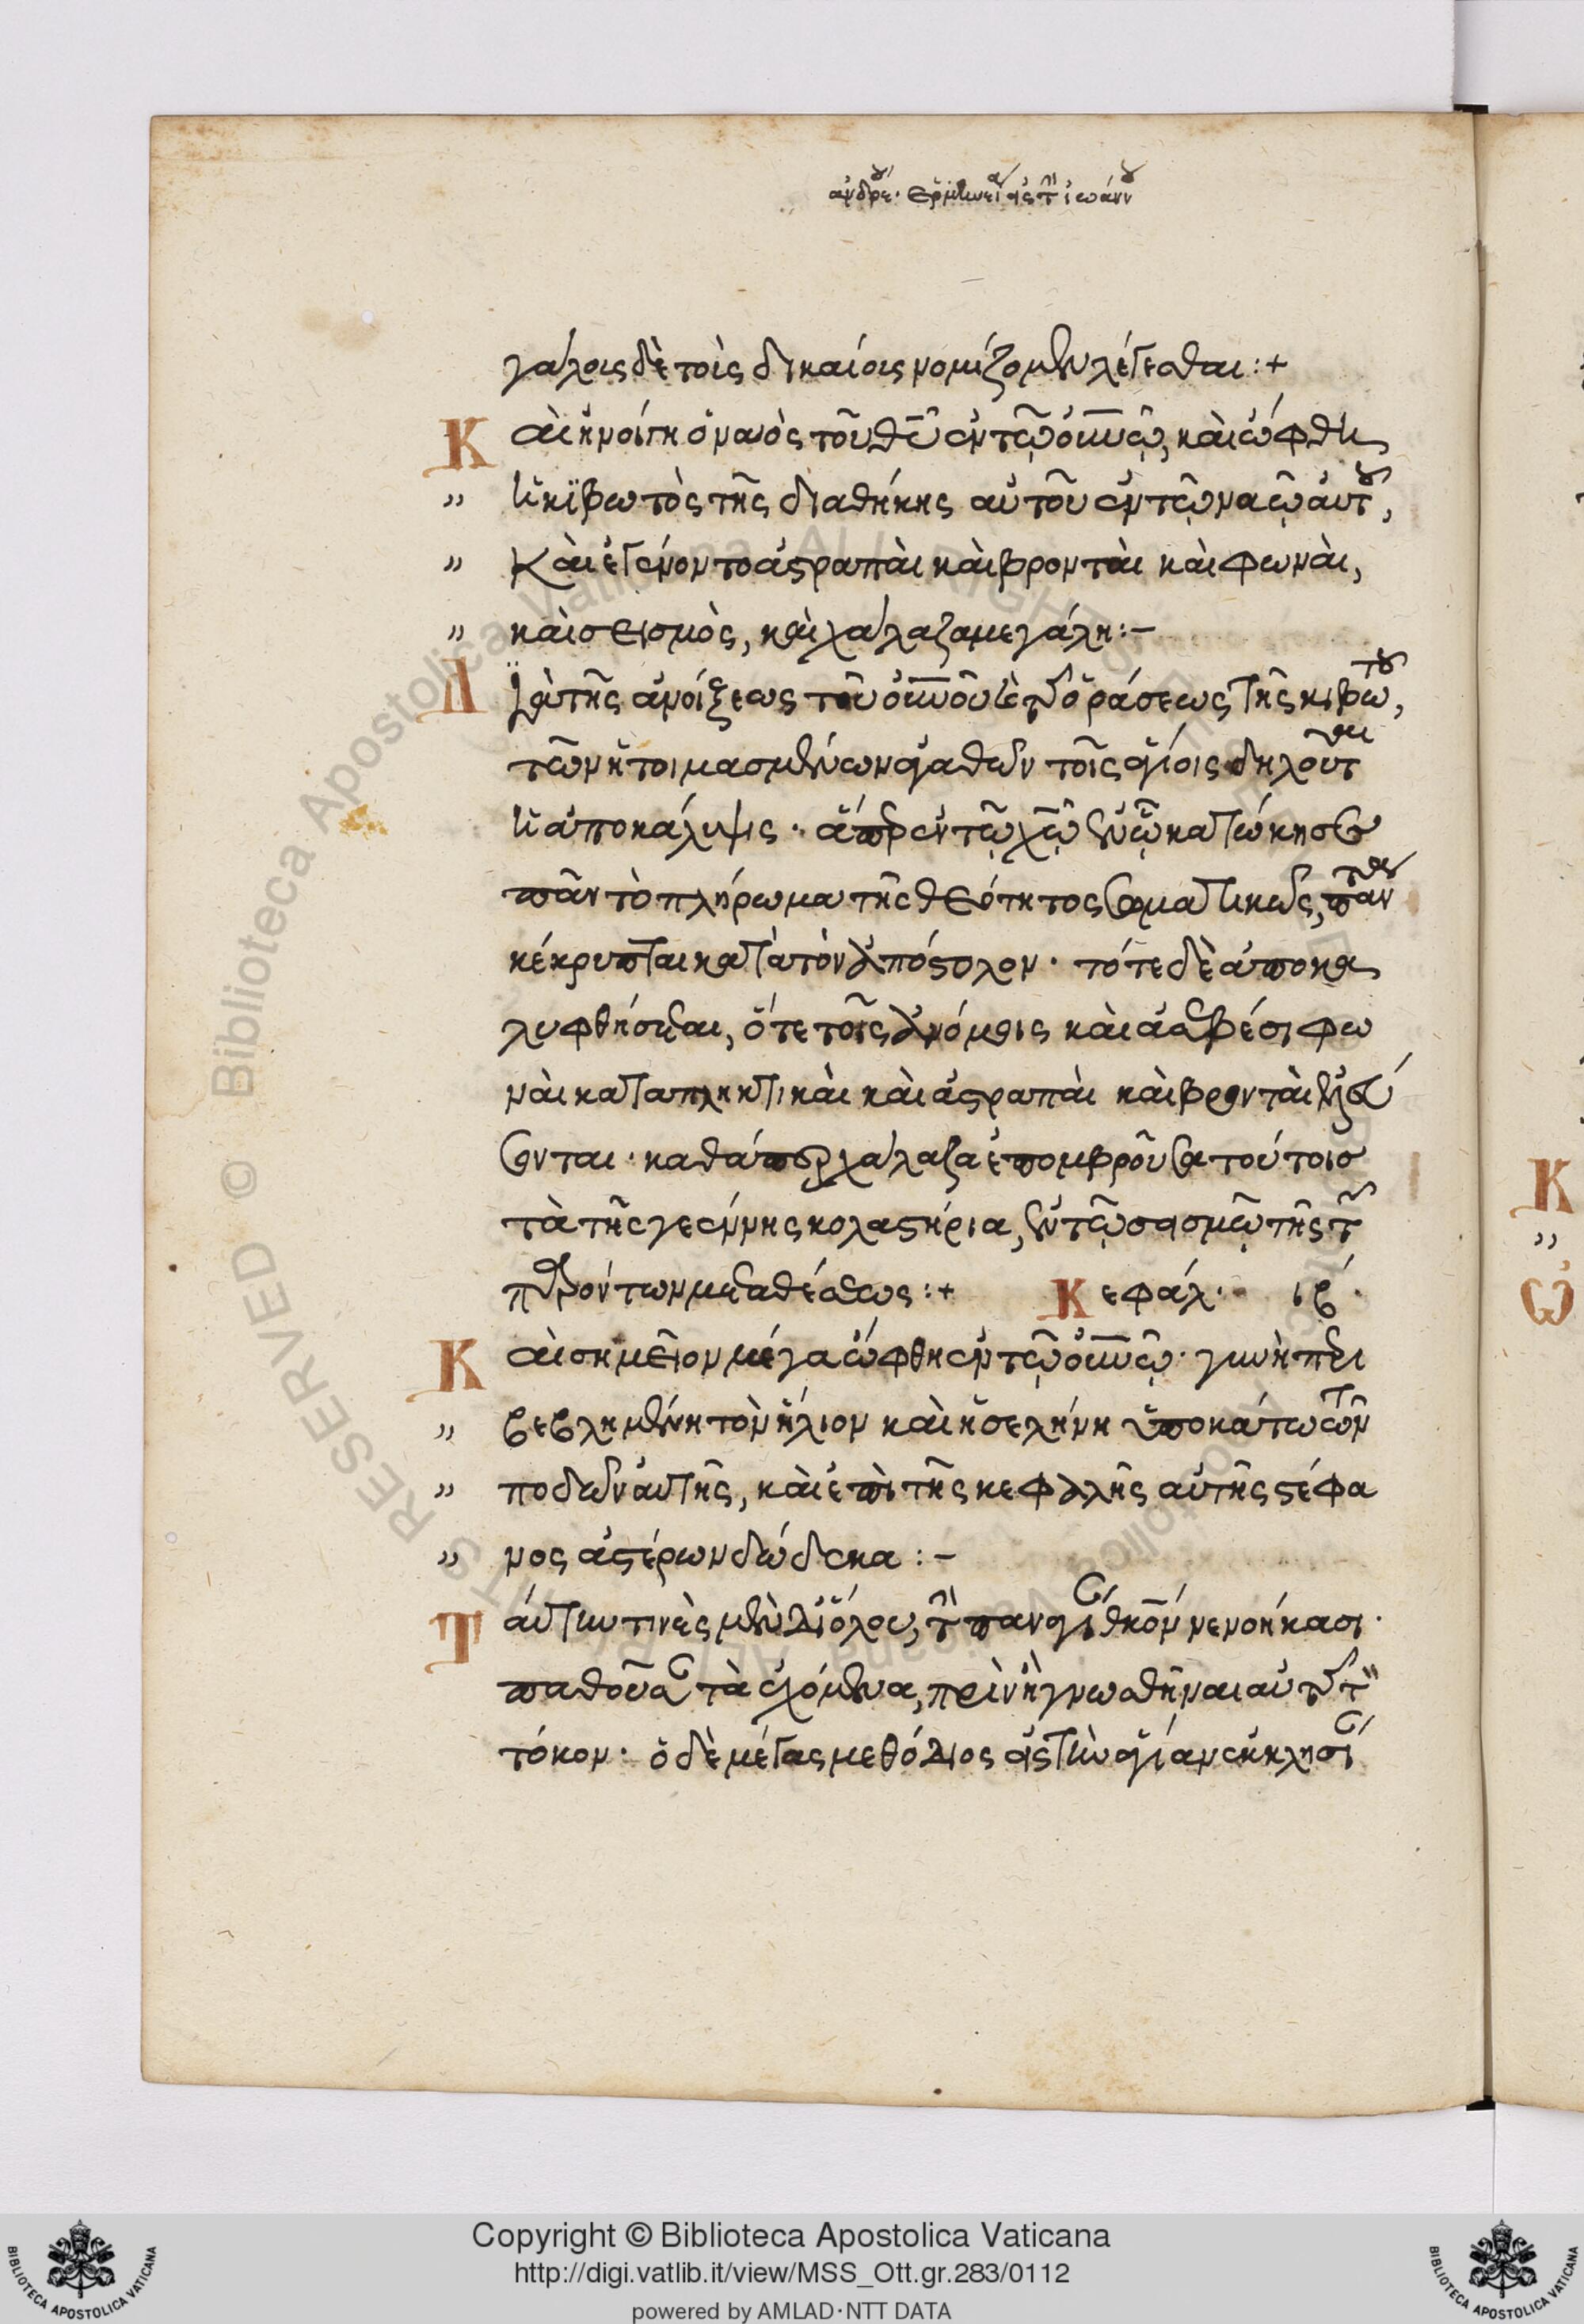 ἀνδρέου ἑρμηνεία εἰς τὴν ἰωάννου
γάλοις δὲ τοῖς δικαίοις νομίζομεν λέγεσθαι :+
Καὶ ἠνοίγη ὁ ναὸς τοῦ θυ ἐν τῷ οὐνῷ, καὶ ὤφθη
„ ἡ κϊβωτὸς τῆς διαθήκης αὐτοῦ ἐν τῷ ναῷ αὐτοῦ,
„ Καὶ ἐγένοντο ἀστραπαὶ καὶ βρονταὶ καὶ φωναὶ,
„ καὶ σεισμὸς, καὶ χάλαζα μεγάλη :-
Διὰ τῆς ἀνοίξεως τοῦ οὐνοῦ καὶ τῆς ὁράσεως τῆς κιβωτοῦ,
τῶν ἡτοιμασμένων ἀγαθῶν τοῖς ἁγίοις δηλοῦται
ἡ ἀποκάλυψις · ἅπερ ἐν τῷ χῷ ἐν ᾧ κατώκησε
πᾶν τὸ πλήρωμα τῆς θεότητος σωματικῶς, πάντα
κέκρυπται κατὰ τὸν ἀπόστολον · τότε δὲ ἀποκα
λυφθήσεται, ὅτε τοῖς ἀνόμοις καὶ ἀσεβέσι φω
ναὶ καταπληκτικαὶ καὶ ἀστραπαὶ καὶ βρονταὶ ἥξου
σονται · καθάπερ χάλαζα ἐπομβροῦσα τούτοις
τὰ τῆς γεέννης κολαστήρια, ἐν τῷ σεισμῷ τῆς τῶν
παρόντων μεταθέσεως :+ Κεφάλ. ιβ ·
Καὶ σημεῖον μέγα ὤφθη ἐν τῷ οὐνῷ · γυνὴ περι
„ βεβλημένη τὸν ἥλιον καὶ ἡ σελήνη ὑποκάτω τῶν
„ ποδῶν αὐτῆς, καὶ ἐπὶ τῆς κεφαλῆς αὐτῆς στέφα
„ νος ἀστέρων δώδεκα :-
Ταύτην τινὲς μὲν διόλου, τὴν παναγίαν θκον νενοήκασι ·
παθοῦσαν τὰ ἑπόμενα, πρὶν ἢ γνωσθῆναι αὐτῆς τὸν
τόκον · ὁ δὲ μέγας μεθόδιος εἰς τὴν ἁγίαν ἐκκλησίαν
Copyright © Biblioteca Apostolica Vaticana
http://digi.vatlib.it/view/MSS_Ott.gr.283/0112
powered by AMLAD·NTT DATA